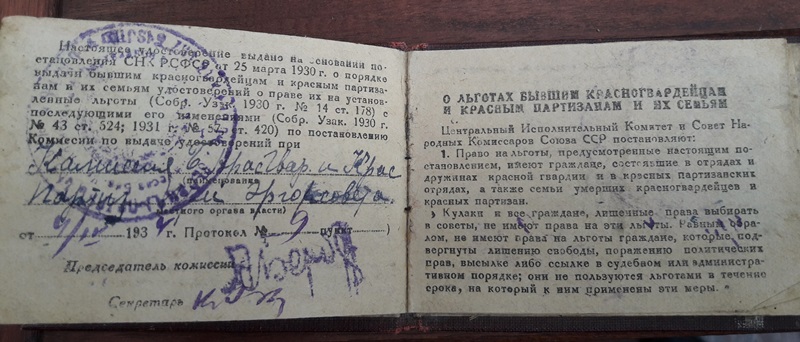 Настоящее удостоверение выдано на основании по-
становления СНК РСФСР от 25 марта 1930 г. о порядке
выдачи бывшим красногвардейцам и красным партиза-
нам и их семьям удостоверений о праве их на установ-
ленные льготы (Собр. Узак. 1930 г. № 14 ст. 178) с
последующими его изменениями (Собр. Узак. 1930 г.
№ 43 ст. 524; 1931 г. № 52, ст. 420) по постановлению
Комиссии по выдаче удостоверений при
Комиссия б. Красгвар. и Крас
(наименование
Партиз. при Горсовета
местного органа власти)
от 193 г. Протокол № 9 пункт )
Председатель комиссии
Секретарь
О ЛЬГОТАХ БЫВШИМ КРАСНОГВАРДЕЙЦАМ
И КРАСНЫМ ПАРТИЗАНАМ И ИХ СЕМЬЯМ
Центральный Исполнительный Комитет и Совет На-
родных Комиссаров Союза ССР постановляют:
1. Право на льготы, предусмотренные настоящим по-
становлением, имеют граждане, состоявшие в отрядах и
дружинах красной гвардии и в красных партизанских
отрядах, а также семьи умерших красногвардейцев и
красных партизан.
Кулаки и все граждане, лишенные права выбирать
в советы, не имеют права на эти льготы. Равным обра-
зом, не имеют права на льготы граждане, которые под-
вергнуты лишению свободы, поражению политических
прав, высылке либо ссылке в судебном или администра-
тивном порядке; они не пользуются льготами в течение
срока, на который к ним применены эти меры.